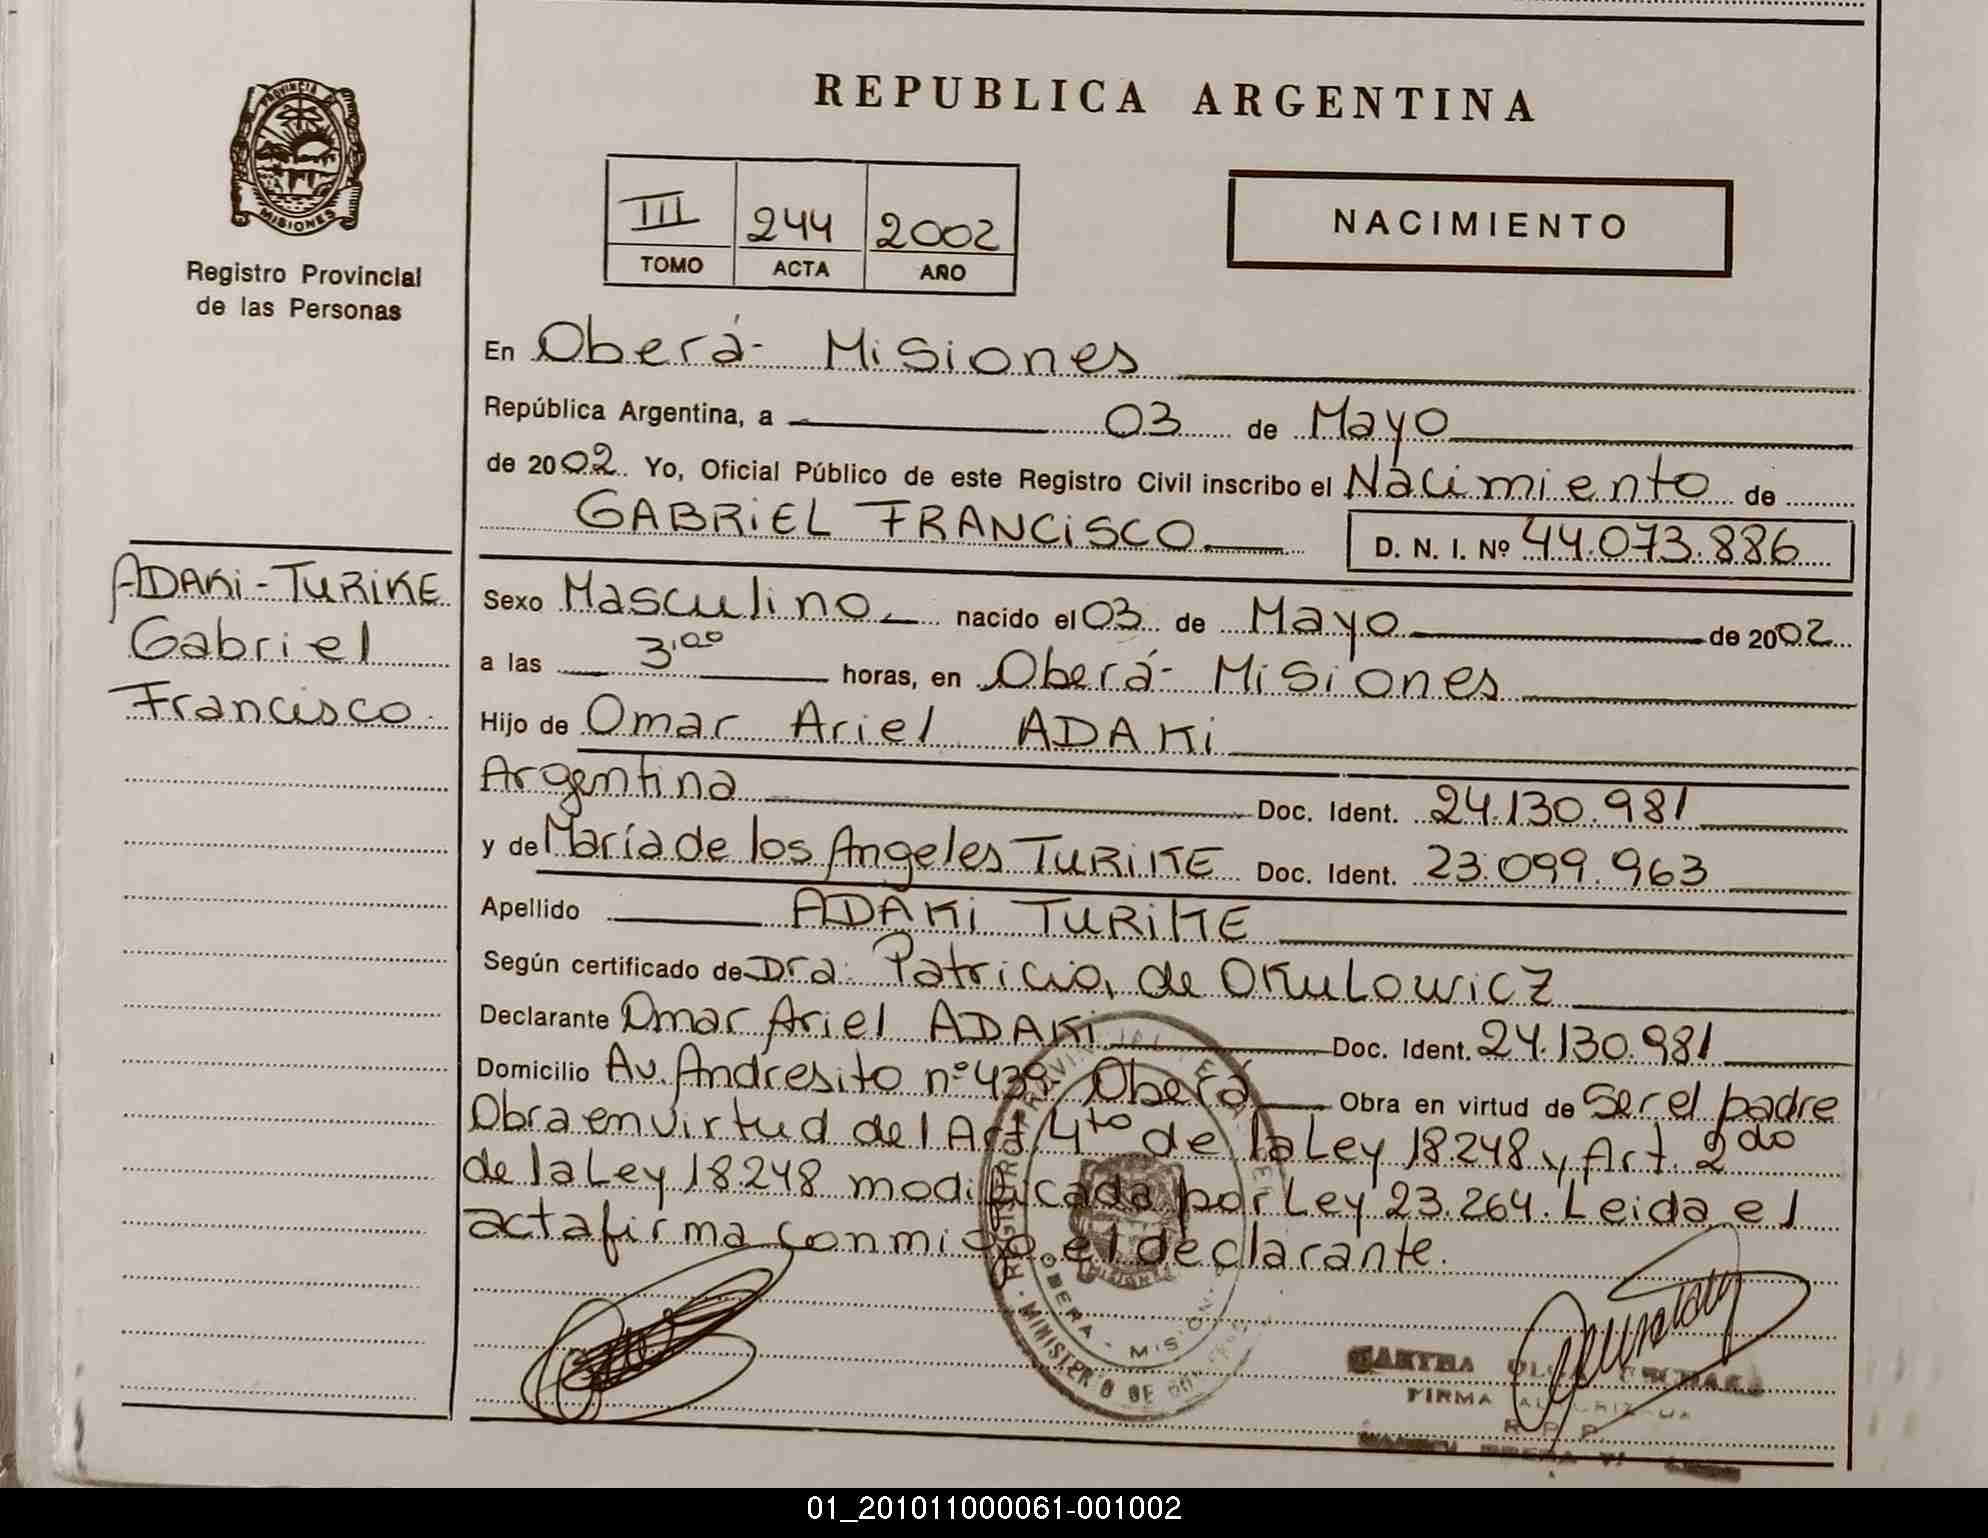 REPUBLICA ARGENTINA
PROVINCIA DE
MISIONES
Registro Provincial
de las Personas
III 244 2002
TOMO ACTA AÑO
NACIMIENTO
En Oberá- Misiones
República Argentina, a 03 de Mayo
de 2002. Yo, Oficial Público de este Registro Civil inscribo el Nacimiento de
GABRIEL FRANCISCO D. N. I. Nº 44.073.886
ADAKI-TURIKE
Gabriel
Francisco.
Sexo Masculino nacido el 03 de Mayo de 2002
a las 3,00 horas, en Oberá- Misiones
Hijo de Omar Ariel ADAKI
Argentina Doc. Ident. 24.130.981
y de María de los Angeles TURIKE Doc. Ident. 23.099.963
Apellido ADAKI TURIKE
Según certificado de Dra. Patricia, de OKULOWICZ
Declarante Omar Ariel ADAKI Doc. Ident. 24.130.981
Domicilio Av. Andresito nº 439- Oberá Obra en virtud de Ser el padre
Obra en virtud del Art. 4to de la Ley 18.248 y Art. 2do
de la Ley 18.248 modificada por Ley 23.264. Leida el
acta firma conmigo el declarante.
OBERA - MISIONES
MINISTERIO DE
MARTHA
FIRMA
R. P. P.
01_201011000061-001002